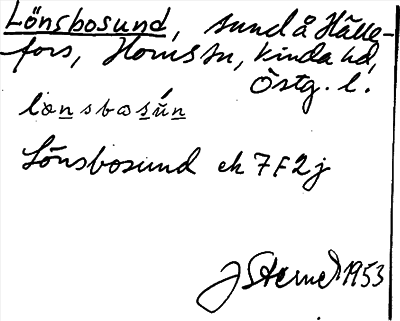 Lönsbosund, sund å Hälle-
fors, Horns sn, Kinda hd,
Östg. l.
lönsbosún
Lönsbosund ek 7F2j
J Sterner 1953